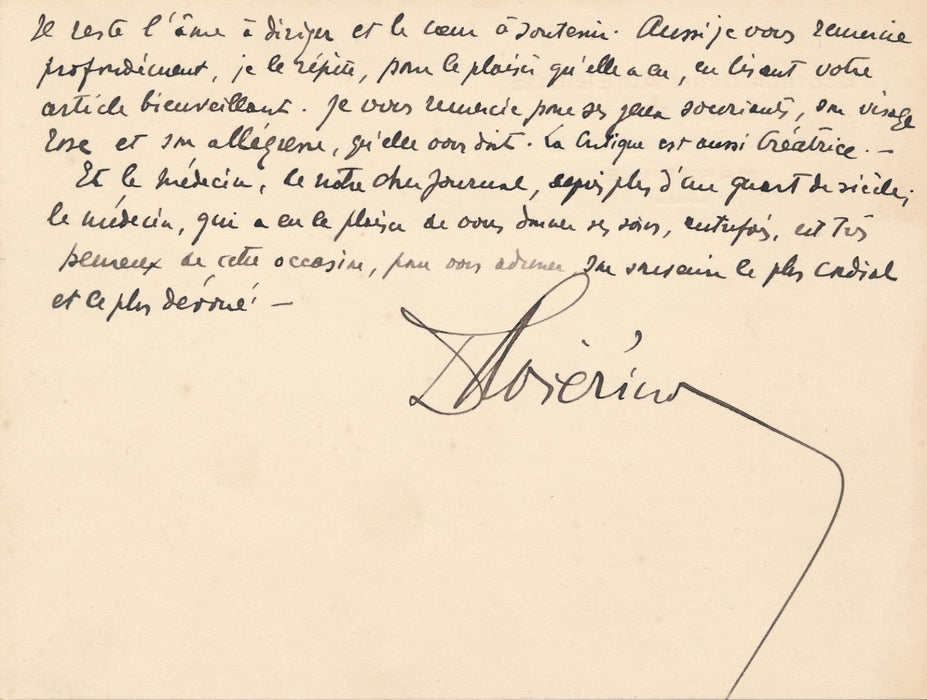 Je reste l'âme à diriger et le cœur à soutenir. Aussi je vous remercie
profondément, je le répète, pour le plaisir qu'elle a eu, en lisant votre
article bienveillant. Je vous remercie pour ses yeux souriants, son visage
rose et son allégresse, qu'elle vous doit. La Critique est aussi Créatrice. —
Et le médecin, de notre cher Journal, depuis plus d'un quart de siècle;
le médecin, qui a eu le plaisir de vous donner ses soins, autrefois, est très
heureux de cette occasion, pour vous adresser son souvenir le plus cordial
et le plus dévoué —